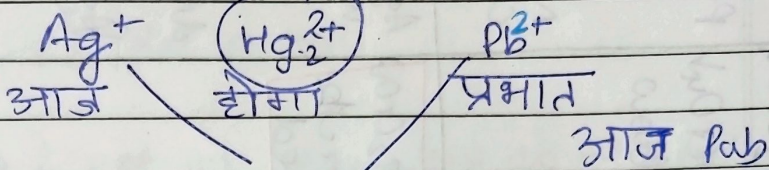 Ag⁺ Hg₂²⁺ Pb²⁺
आज होगा प्रभात
आज Pab